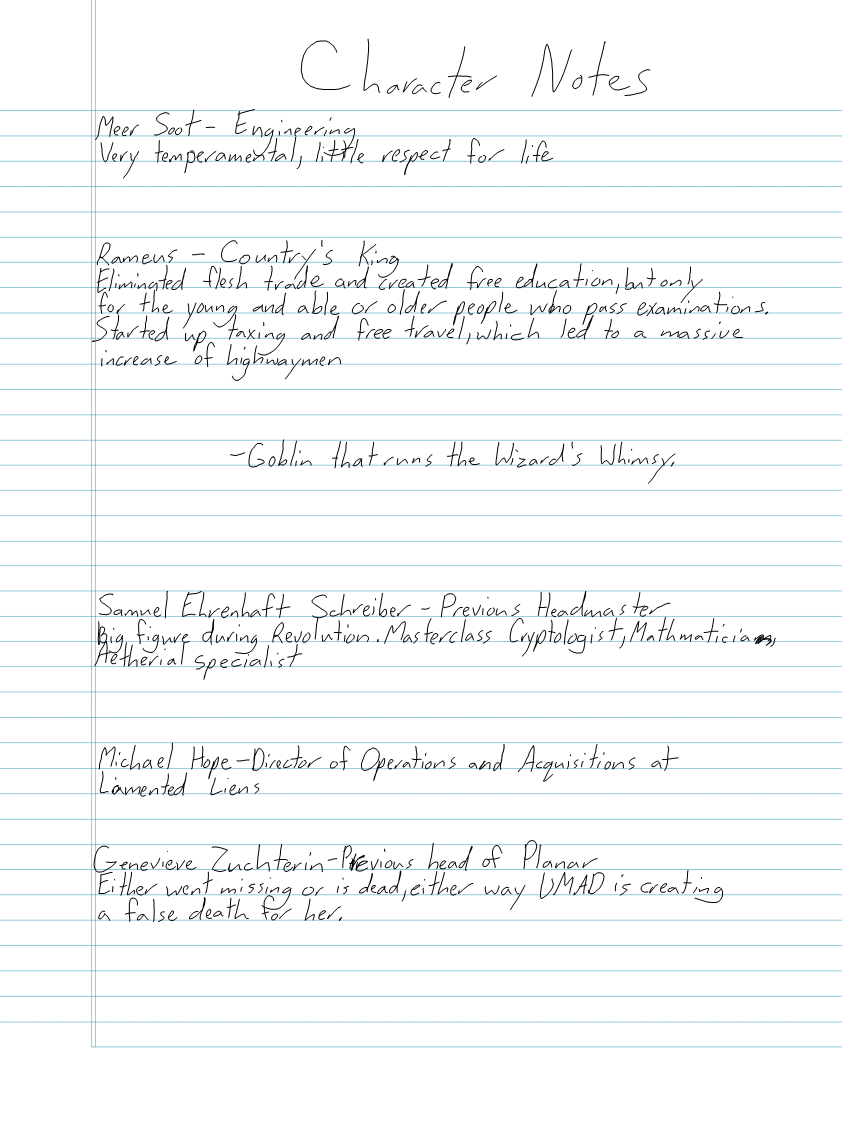 Character Notes
Meer Soot - Engineering
Very temperamental, little respect for life
Rameus - Country's King
Eliminated flesh trade and created free education, but only
for the young and able or older people who pass examinations.
Started up taxing and free travel, which led to a massive
increase of highwaymen
-Goblin that runs the Wizard's Whimsy.
Samuel Ehrenhaft Schreiber - Previous Headmaster
Big figure during Revolution. Masterclass Cryptologist, Mathmatician,
Aetherial specialist
Michael Hope-Director of Operations and Acquisitions at
Lamented Liens
Genevieve Zuchterin-Previous head of Planar
Either went missing or is dead, either way UMAD is creating
a false death for her.